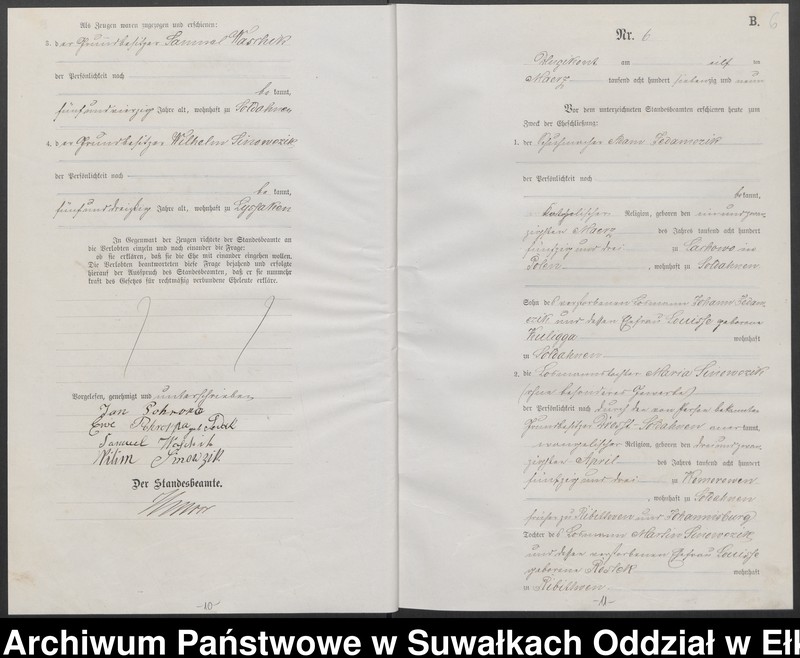 Als Zeugen waren zugezogen und erschienen:
3. der Grundbesitzer Samuel Waschek
der Persönlichkeit nach
be kannt,
fünfundvierzig Jahre alt, wohnhaft zu Soldahnen
4. der Grundbesitzer Wilhelm Sinowczik
der Persönlichkeit nach
be kannt,
fünfunddreißig Jahre alt, wohnhaft zu Lyssaken
In Gegenwart der Zeugen richtete der Standesbeamte an
die Verlobten einzeln und nach einander die Frage:
ob sie erklären, daß sie die Ehe mit einander eingehen wollen.
Die Verlobten beantworteten diese Frage bejahend und erfolgte
hierauf der Ausspruch des Standesbeamten, daß er sie nunmehr
kraft des Gesetzes für rechtmäßig verbundene Eheleute erkläre.
Vorgelesen, genehmigt und unterschrieben
Jan
Samuel
Der Standesbeamte.
-10-
B. 6
Nr. 6
am elf ten
Maerz tausend acht hundert siebenzig und neun
Vor dem unterzeichneten Standesbeamten erschienen heute zum
Zweck der Eheschließung:
1. der Adam Jedamczik
der Persönlichkeit nach
bekannt,
katholischer Religion, geboren den neunundzwan-
zigsten Maerz des Jahres tausend acht hundert
fünfzig und drei zu in
Polen, wohnhaft zu Soldahnen
Sohn des verstorbenen Losmann Johann Jedam-
czik und dessen Ehefrau Louise geborene
Kuligga wohnhaft
in Soldahnen
2. die Losmannstochter Maria Sinowczik
(ohne besonderes Gewerbe)
der Persönlichkeit nach durch den von Person bekannten
Grundbesitzer Soldahnen aner kannt,
evangelischer Religion, geboren den dreiundzwan-
zigsten April des Jahres tausend acht hundert
fünfzig und drei zu
, wohnhaft zu Soldahnen
früher zu Ribittwen und Johannisburg
Tochter des Losmann Martin Sinowczik
und dessen verstorbenen Ehefrau Louise
geborene Rostek wohnhaft
in Ribittwen
-11-
Archiwum Państwowe w Suwałkach Oddział w Ełk